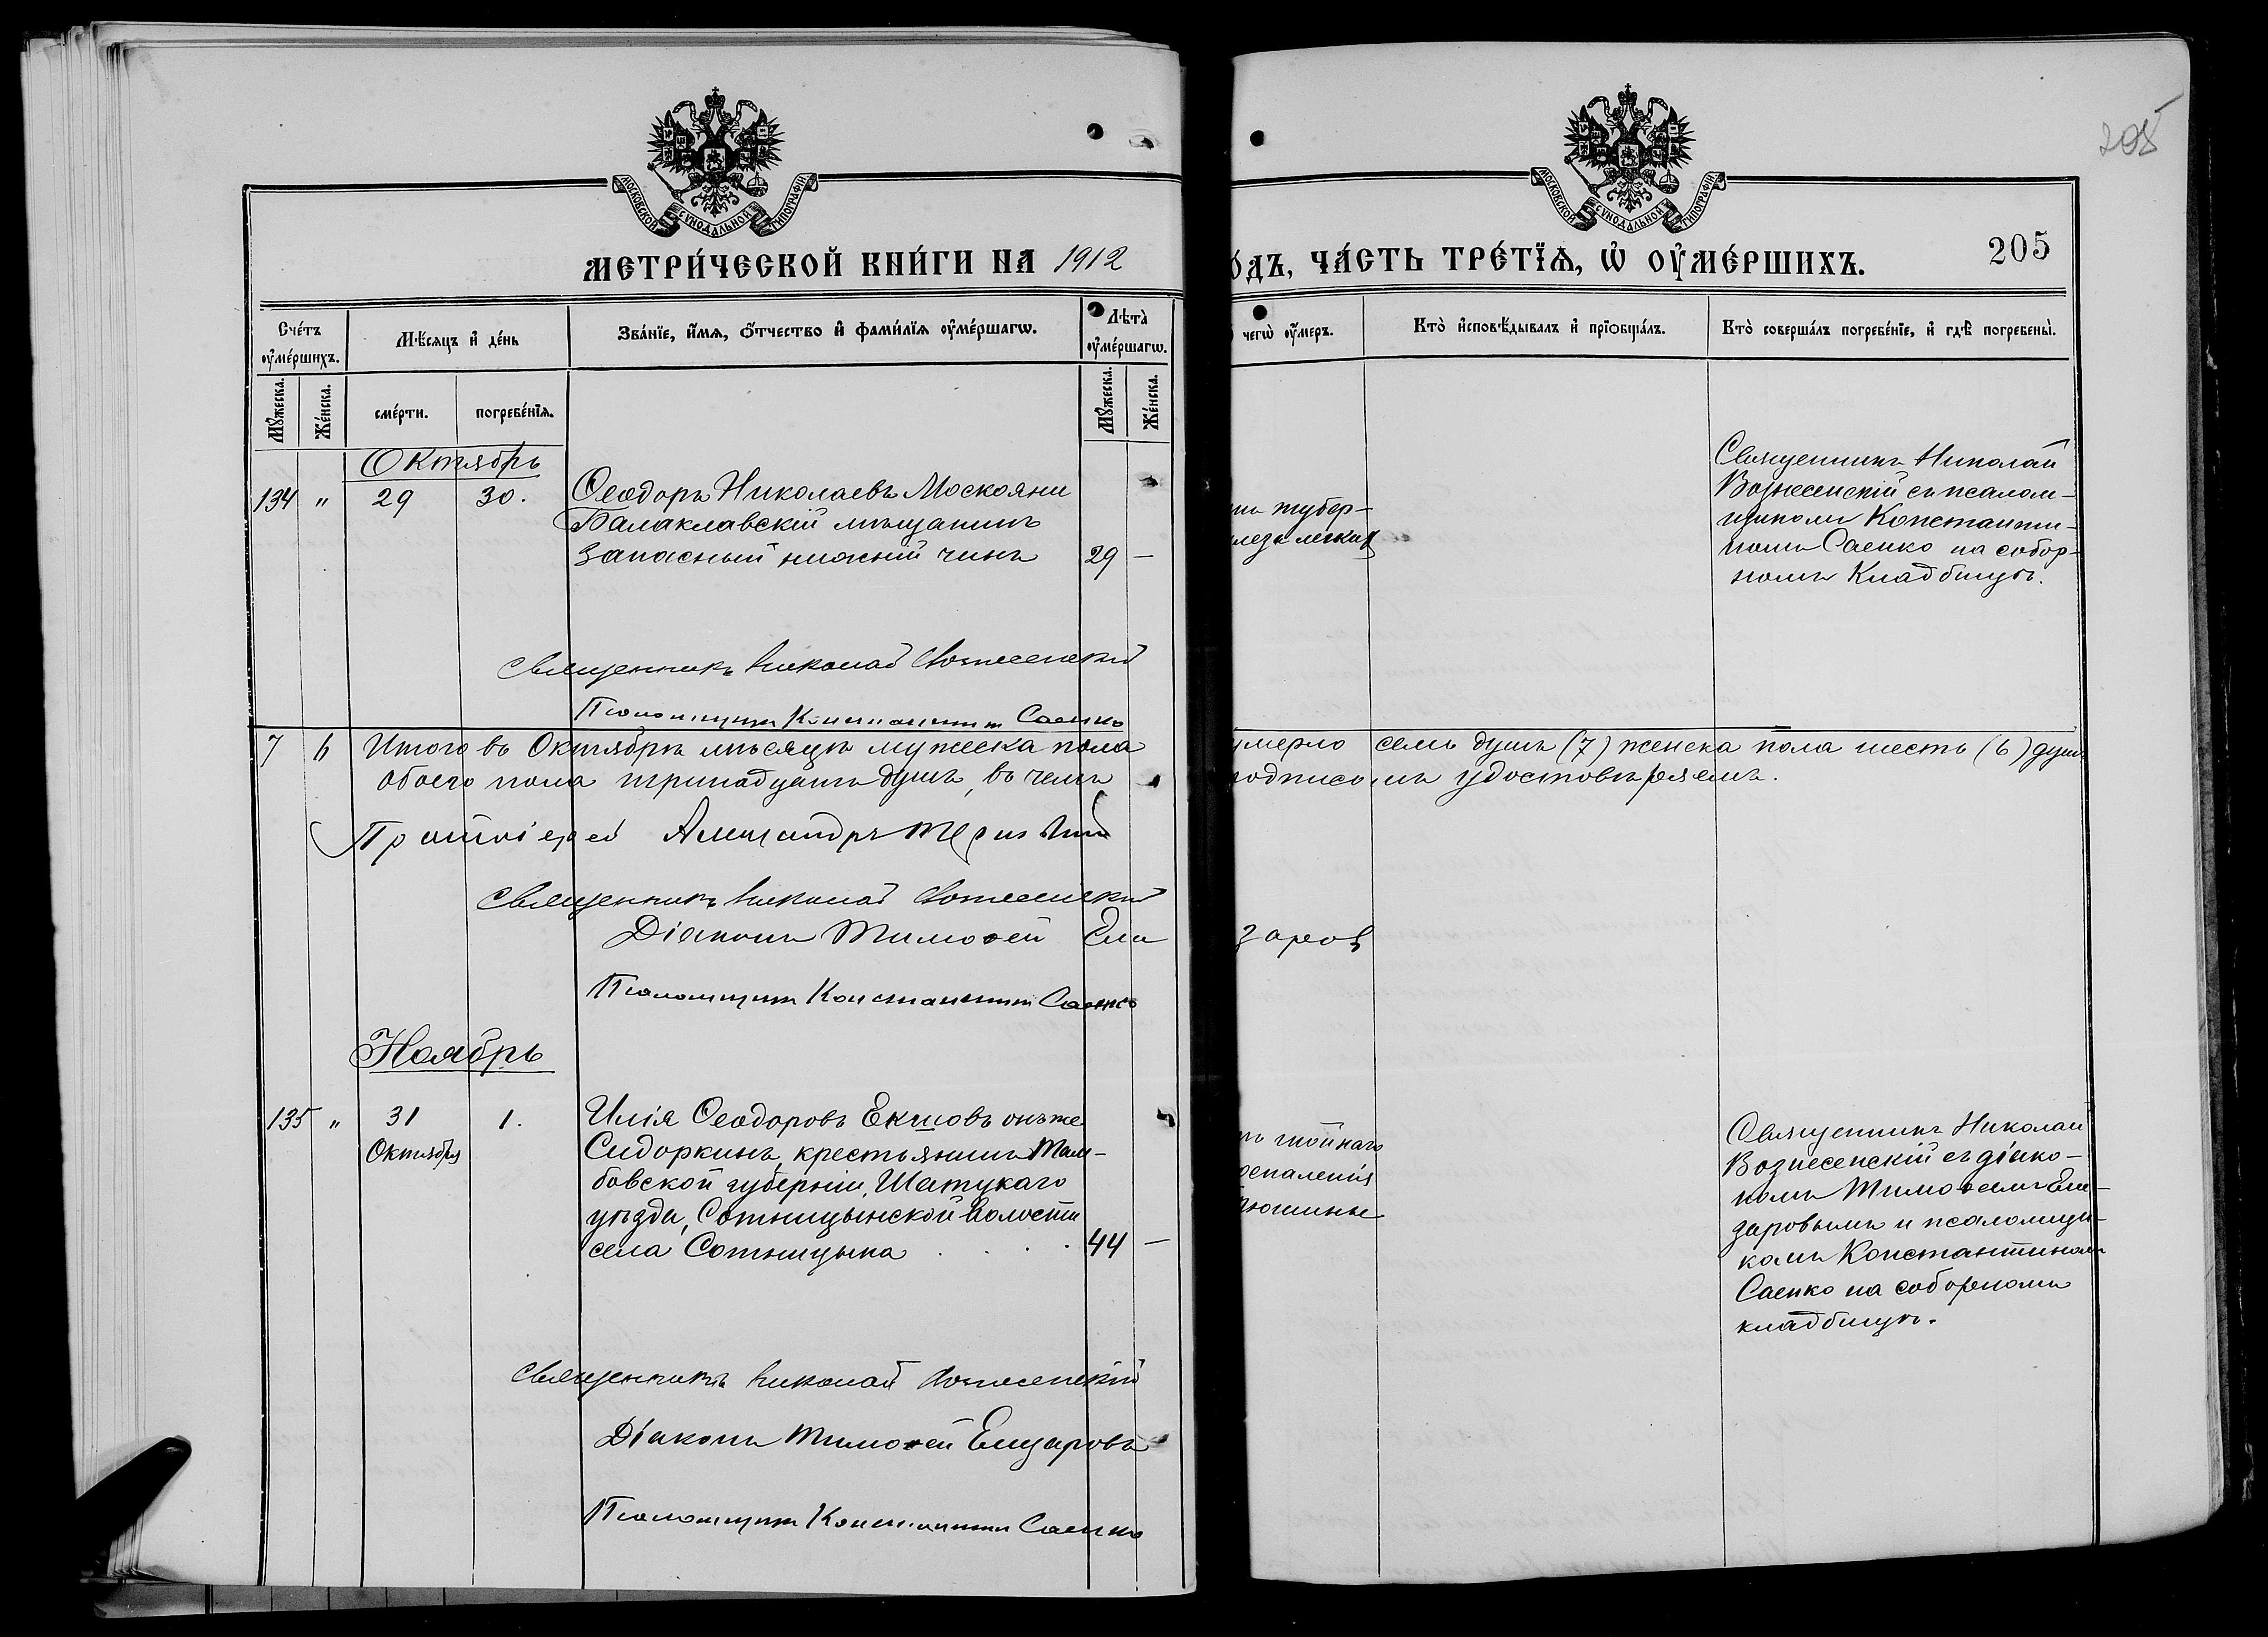 205
МОСКОВСКОЙ СѴНОДАЛЬНОЙ ТИПОГРАФІИ
МОСКОВСКОЙ СѴНОДАЛЬНОЙ ТИПОГРАФІИ
МЕТРИ́ЧЕСКОЙ КНИ́ГИ НА 1912
ОДЪ, ЧА́СТЬ ТРЕ́ТЇѦ, Ѡ҆ ОУ҆МЕ́РШИХЪ.
205
Сче́тъ оу҆ме́ршихъ.
Мѣ́сяцъ и҆ де́нь
Зва́нїе, и҆́мѧ, ѻ҆́тчество и҆ фами́лїѧ оу҆ме́ршагѡ.
Лѣта̀ оу҆ме́ршагѡ.
чегѡ̀ оу҆́меръ.
Кто̀ и҆сповѣ́дывалъ и҆ прїѻбща́лъ.
Кто̀ соверша́лъ погребе́нїе, и҆ гдѣ̀ погребены̀.
Мꙋ́жеска.
Же́нска.
сме́рти.
погребе́нїѧ.
Мꙋ́жеска.
Же́нска.
Октябрь
134 " 29 30. Ѳеодоръ Николаевъ Москояни
Балаклавскій мѣщанинъ
запасный нижній чинъ 29 —
тубер-
леза легких
Священникъ Николай
Вознесенскій съ псалом-
щикомъ Константи-
номъ Саенко на собор-
номъ Кладбищѣ.
Священникъ Николай Вознесенскій
Псаломщикъ Константин Саенко
7 6 Итого въ Октябрѣ мѣсяцѣ мужеска пола
умерло семь душъ (7) женска пола шесть (6) душъ
обоего пола тринадцать душъ, въ чемъ
подписомъ удостовѣряемъ.
Протоіерей Александръ
Священникъ Николай Вознесенскій
Діаконъ Тимоѳей Ели
заров
Псаломщикъ Константин Саенко
Ноябрь
135 " 31 1. Илія Ѳеодоровъ Екшовъ онъже
Октября Сидоркинъ, крестьянинъ Там-
бовской губерніи, Шатцкаго
уѣзда, Сотницынской волости
села Сотницына . . . . 44 —
гнойнаго
оспаленія
рюшины
Священникъ Николай
Вознесенскій съ діако-
номъ Тимоѳеемъ Ели-
заровымъ и псаломщи-
комъ Константиномъ
Саенко на соборномъ
кладбищѣ.
Священникъ Николай Вознесенскій
Діаконъ Тимоѳей Елизаровъ
Псаломщикъ Константин Саенко